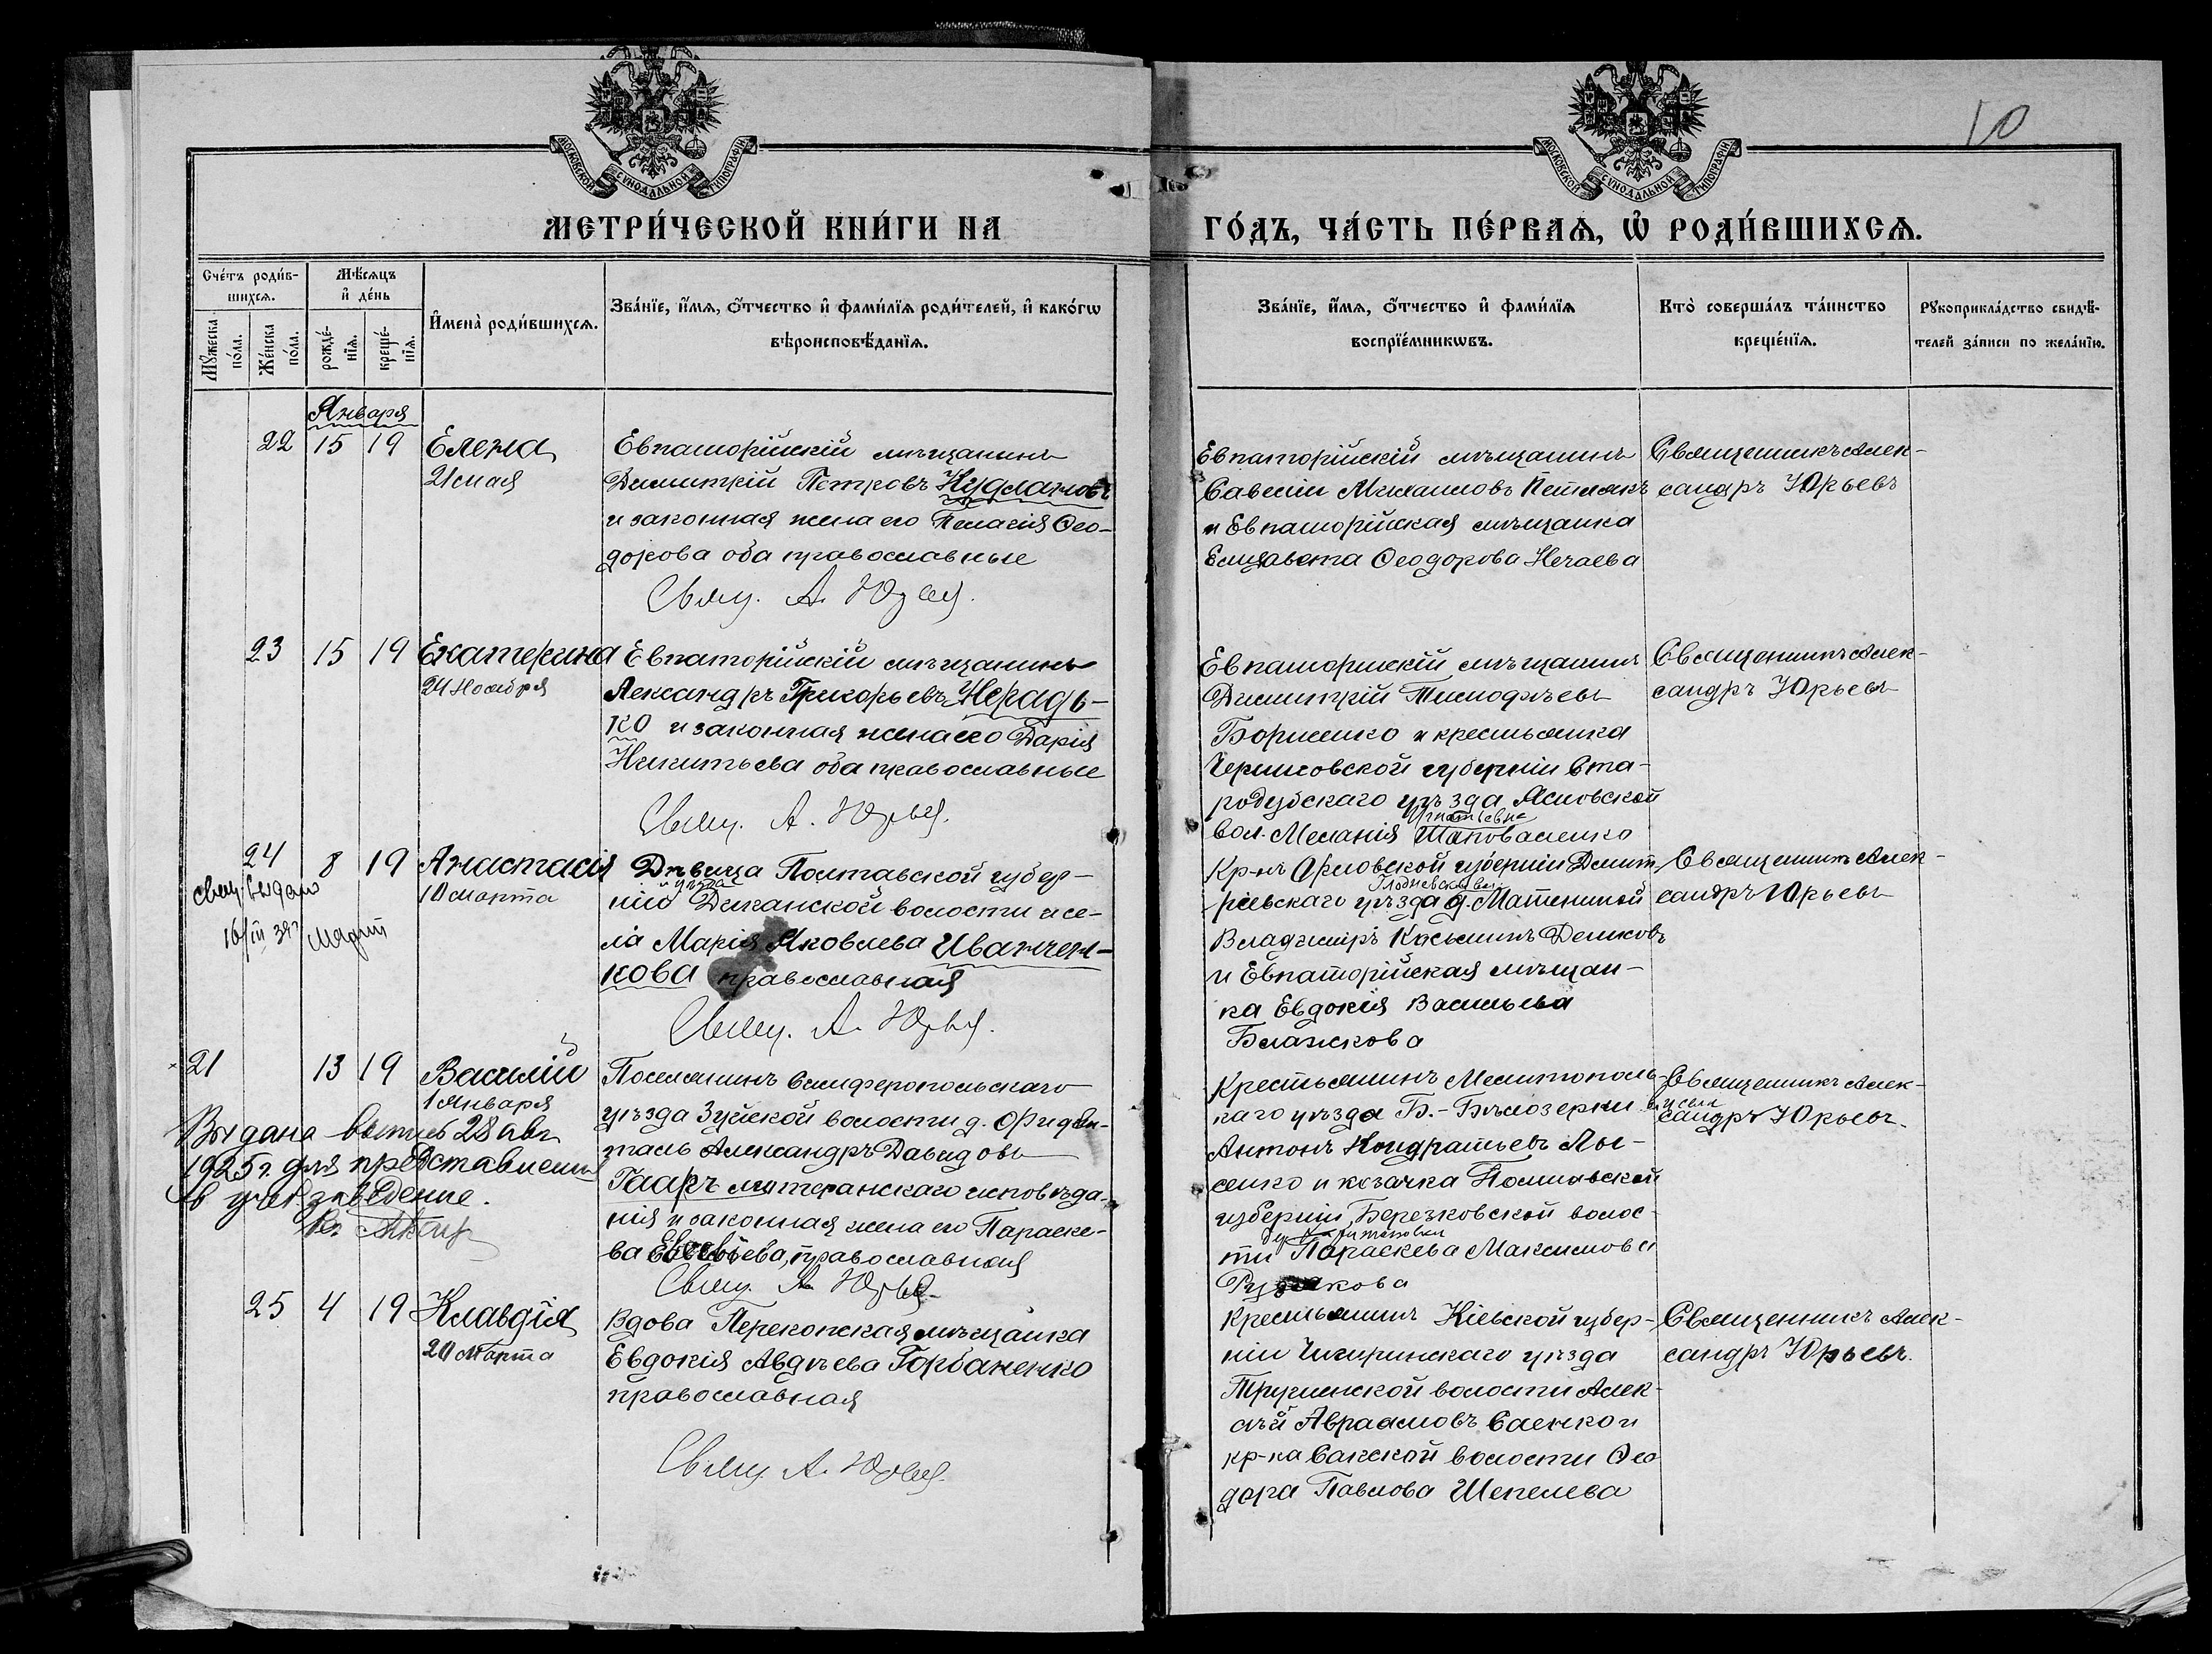 10
МОСКОВСКОЙ СѴНОДАЛЬНОЙ ТИПОГРАФІИ
МОСКОВСКОЙ СѴНОДАЛЬНОЙ ТИПОГРАФІИ
МЕТРИ́ЧЕСКОЙ КНИ́ГИ НА ГО́ДЪ, ЧА́СТЬ ПЕ́РВАѦ, Ѡ҆ РОДИ́ВШИХСѦ.
Сче́тъ роди́в-
шихсѧ.
Мѣ́сѧцъ
и҆ де́нь
Мꙋ́жеска
по́ла.
Же́нска
по́ла.
рожде́-
нїѧ.
креще́-
нїѧ.
И҆мена̀ роди́вшихсѧ.
Зва́нїе, и҆́мѧ, ѻ҆́тчество и҆ фами́лїѧ роди́телей, и҆ како́гѡ
вѣроисповѣ́данїѧ.
Зва́нїе, и҆́мѧ, ѻ҆́тчество и҆ фами́лїѧ
воспрїе́мникѡвъ.
Кто̀ соверша́лъ та́инство
креще́нїѧ.
Рꙋкоприкла́дство свидѣ́-
телей за́писи по жела́нїю.
Января
22 15 19 Елена
21 мая
Евпаторійскій мѣщанинъ
Димитрій Петровъ
и законная жена его Пелагія Ѳео-
дорова оба православные
Свящ. А. Юрьев.
Евпаторійскій мѣщанинъ
Савелій Михаиловъ
и Евпаторійская мѣщанка
Елизавета Ѳеодорова Нечаева
Священникъ Алек-
сандръ Юрьевъ
23 15 19 Екатерина
24 Ноября
Евпаторійскій мѣщанинъ
Александръ Григорьевъ Нерадь-
ко и законная жена его Дарія
Никитьева оба православные
Свящ. А. Юрьев.
Евпаторійскій мѣщанинъ
Димитрій Тимофѣевъ
Борисенко и крестьянка
Черниговской губерніи Ста-
родубскаго уѣзда
Игнатьевна
вол. Меланія Шаповаленко
Священникъ Алек-
сандръ Юрьевъ
24 8 19 Анастасія
10 марта
свид. выдано
16/III 39 г.
Дѣвица Полтавской губер-
и уѣзда
ніи Диканской волости и се-
ла Марія Яковлева Иванчен-
кова православная
Свящ. А. Юрьев.
Кр-нъ Орловской губерніи Дмит-
ріевскаго уѣзда д.
Владиміръ Косьминъ
и Евпаторійская мѣщан-
ка Евдокія Васильева
Блажкова
Священникъ Алек-
сандръ Юрьевъ
21 13 19 Василій
1 Января
Выдана выпись 28 авг.
1925 г. для представленія
в учеб. заведение.
Поселянинъ Симферопольскаго
уѣзда Зуйской волости д. Фриден-
таль Александръ Давидовъ
Гааръ лютеранскаго исповѣда-
нія и законная жена его Параске-
ва, православная
Свящ. А. Юрьев.
Крестьянинъ Мелитополь-
скаго уѣзда Б.-Бѣлозерки
Антонъ Кондратьевъ Лы-
сенко и козачка Полтавской
губерніи, Березковской волос-
ти Параскева Максимова
Священникъ Алек-
сандръ Юрьевъ.
25 4 19 Клавдія
20 Марта
Вдова Перекопская мѣщанка
Евдокія Авдѣева Горбаненко
православная
Свящ. А. Юрьев.
Крестьянинъ Кіевской губер-
ніи Чигиринскаго уѣзда
волости Алек-
сѣй Авраамовъ Саенко и
кр-ка Сакской волости Ѳео-
дора Павлова Шепелева
Священникъ Алек-
сандръ Юрьевъ.